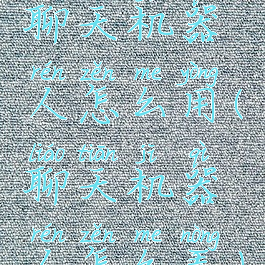 聊天机器
rén zěn me yòng
人怎么用(
liáo tiān jī qì
聊天机器
rén zěn me néng
人怎么